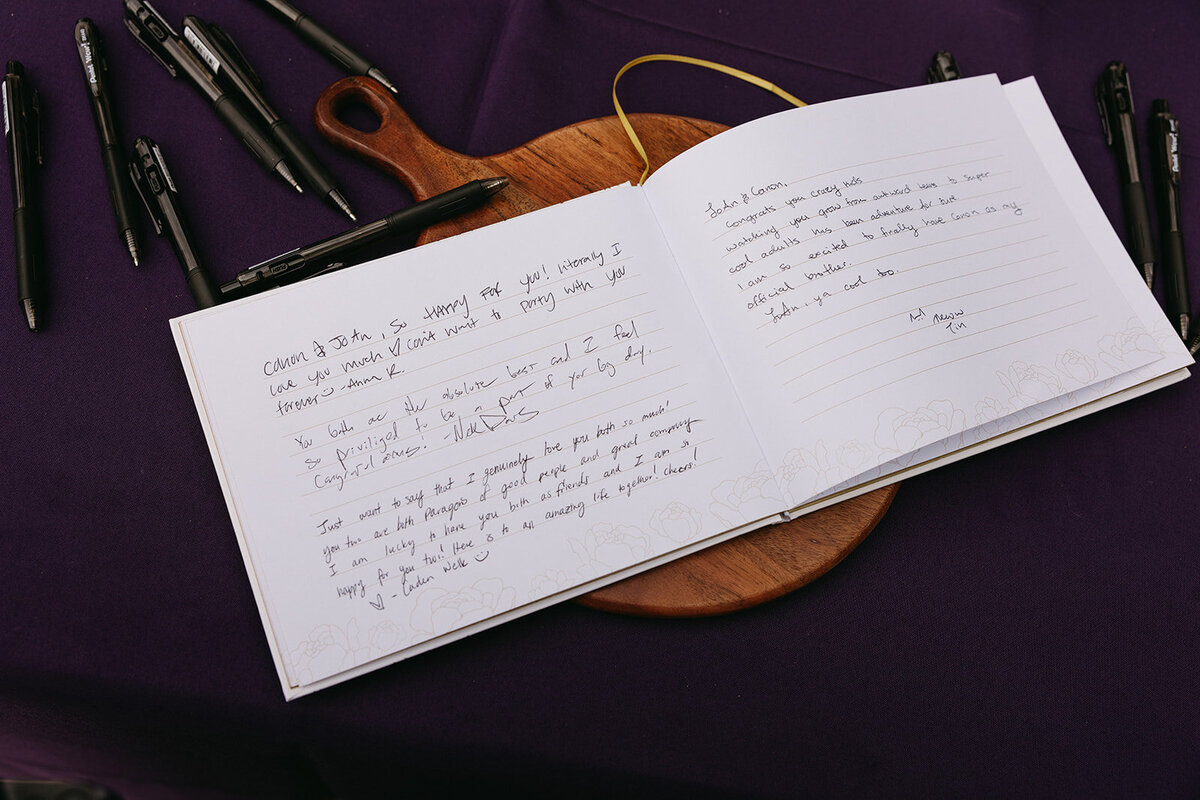 Canon & JoAn, so HAPPY FOR you! literally I
love you much ♡ can't wait to party with you
forever :) - Anna R.
You both are the absolute best and I feel
so priviliged to be a part of your big day.
Congratulations! - Nick Davis
Just want to say that I genuinely love you both so much!
you two are both Paragons of good people and great company
I am lucky to have you both as friends and I am so
happy for you two! Here is to an amazing life together! Cheers!
♡ - Caden Welk :)
JoAn & Canon,
Congrats you crazy kids
watching you grow from awkward teens to super
cool adults has been adventure for sure
I am so excited to finally have Canon as my
official brother.
JoAn, ya cool too.
Pentel Wow!